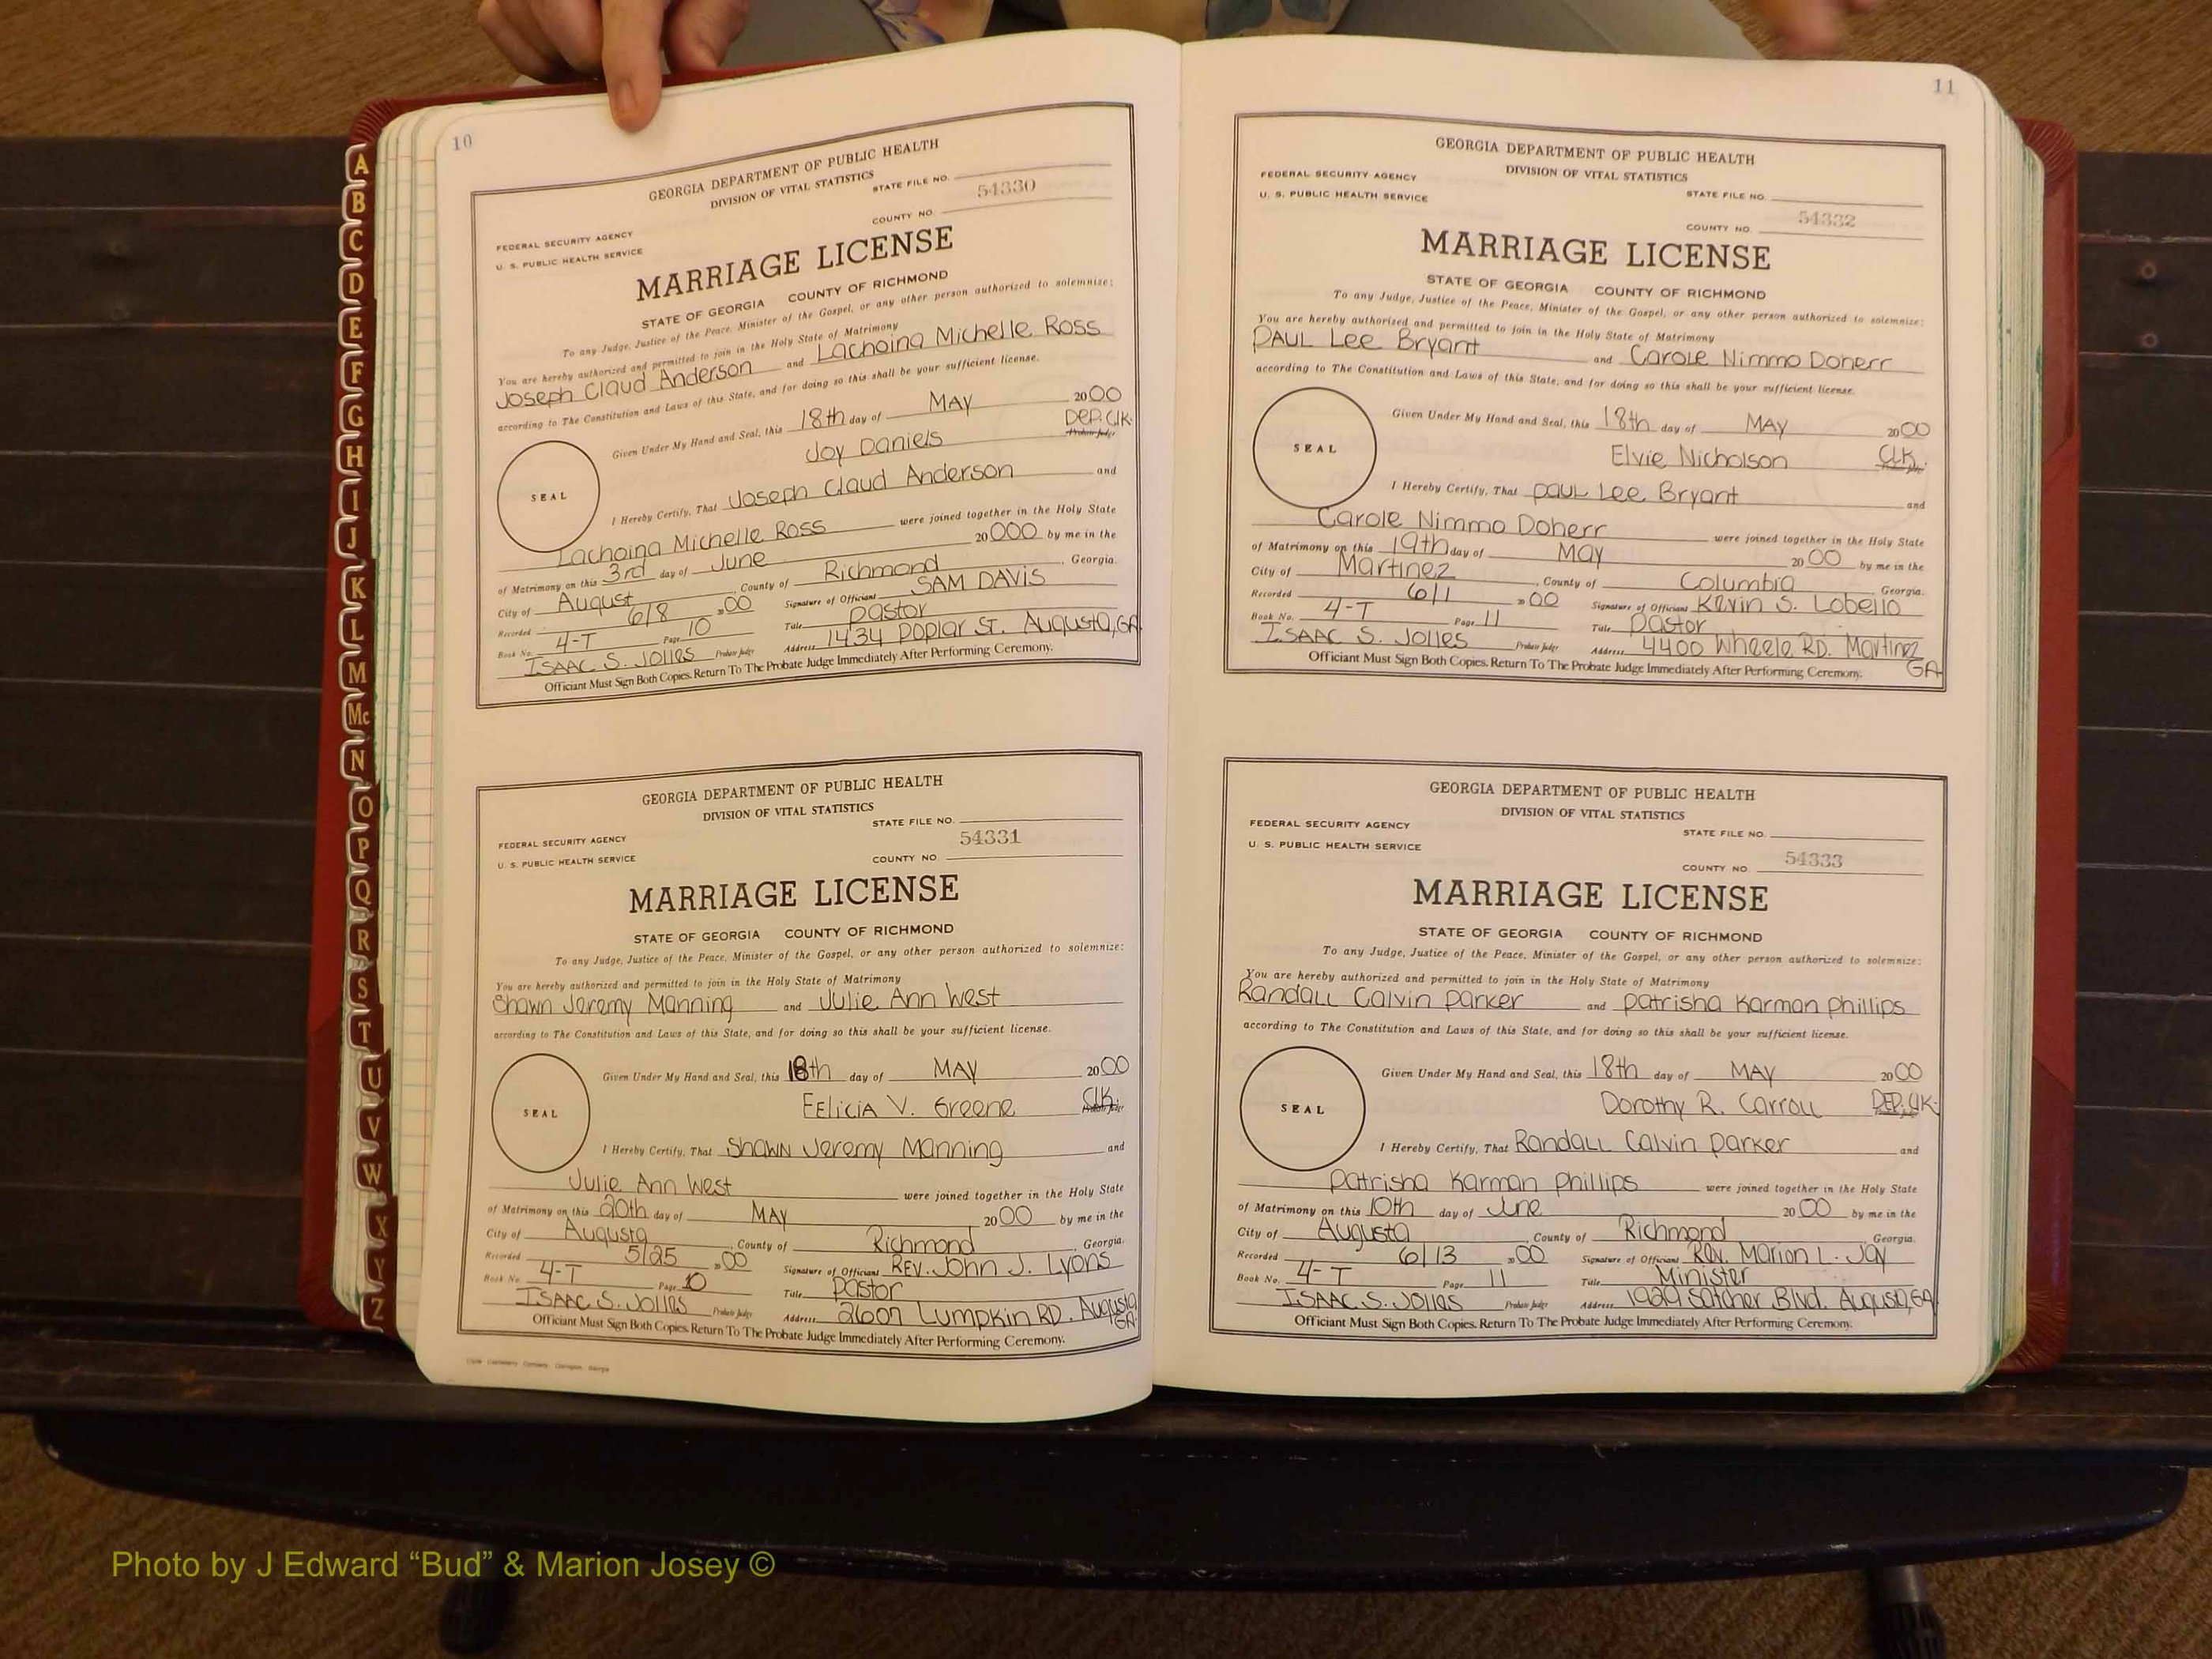 10
GEORGIA DEPARTMENT OF PUBLIC HEALTH
DIVISION OF VITAL STATISTICS
STATE FILE NO.
54330
COUNTY NO.
FEDERAL SECURITY AGENCY
U. S. PUBLIC HEALTH SERVICE
MARRIAGE LICENSE
STATE OF GEORGIA COUNTY OF RICHMOND
To any Judge, Justice of the Peace, Minister of the Gospel, or any other person authorized to solemnize:
You are hereby authorized and permitted to join in the Holy State of Matrimony
Joseph Claud Anderson and Lachoina Michelle Ross
according to The Constitution and Laws of this State, and for doing so this shall be your sufficient license.
Given Under My Hand and Seal, this 18th day of MAY 2000
Joy Daniels DEP. Clk. Probate Judge
SEAL
I Hereby Certify, That Joseph Claud Anderson and
Lachoina Michelle Ross were joined together in the Holy State
of Matrimony on this 3rd day of June 20000 by me in the
City of August, County of Richmond, Georgia.
Recorded 6/8 00 Signature of Officiant SAM DAVIS
Book No. 4-T Page 10 Title Pastor
ISAAC S. JOlles Probate Judge Address 1434 Poplar St. Augusta, GA
Officiant Must Sign Both Copies. Return To The Probate Judge Immediately After Performing Ceremony.
GEORGIA DEPARTMENT OF PUBLIC HEALTH
DIVISION OF VITAL STATISTICS
STATE FILE NO.
FEDERAL SECURITY AGENCY
54331
U. S. PUBLIC HEALTH SERVICE
COUNTY NO.
MARRIAGE LICENSE
STATE OF GEORGIA COUNTY OF RICHMOND
To any Judge, Justice of the Peace, Minister of the Gospel, or any other person authorized to solemnize:
You are hereby authorized and permitted to join in the Holy State of Matrimony
Shawn Jeremy Manning and Julie Ann West
according to The Constitution and Laws of this State, and for doing so this shall be your sufficient license.
Given Under My Hand and Seal, this 18th day of MAY 2000
FeliciA V. Greene Clk. Probate Judge
SEAL
I Hereby Certify, That Shawn Jeremy Manning and
Julie Ann West were joined together in the Holy State
of Matrimony on this 20th day of MAY 2000 by me in the
City of Augusta, County of Richmond, Georgia.
Recorded 5/25 00 Signature of Officiant REV. John J. Lyons
Book No. 4-T Page 10 Title Pastor
ISAAC S. JOlles Probate Judge Address 2607 Lumpkin RD. Augusta GA
Officiant Must Sign Both Copies. Return To The Probate Judge Immediately After Performing Ceremony.
11
GEORGIA DEPARTMENT OF PUBLIC HEALTH
DIVISION OF VITAL STATISTICS
FEDERAL SECURITY AGENCY
STATE FILE NO.
U. S. PUBLIC HEALTH SERVICE
54332
COUNTY NO.
MARRIAGE LICENSE
STATE OF GEORGIA COUNTY OF RICHMOND
To any Judge, Justice of the Peace, Minister of the Gospel, or any other person authorized to solemnize:
You are hereby authorized and permitted to join in the Holy State of Matrimony
PAUL Lee Bryant and Carole Nimmo Doherr
according to The Constitution and Laws of this State, and for doing so this shall be your sufficient license.
Given Under My Hand and Seal, this 18th day of MAY 2000
Elvie Nicholson Clk.
SEAL
I Hereby Certify, That PAUL Lee Bryant and
Carole Nimmo Doherr were joined together in the Holy State
of Matrimony on this 19th day of May 2000 by me in the
City of Martinez, County of Columbia Georgia.
Recorded 6/1 00 Signature of Officiant Kevin S. Lobello
Book No. 4-T Page 11 Title Pastor
ISAAC S. JOlles Probate Judge Address 4400 Wheele RD. Martinez GA
Officiant Must Sign Both Copies. Return To The Probate Judge Immediately After Performing Ceremony.
GEORGIA DEPARTMENT OF PUBLIC HEALTH
DIVISION OF VITAL STATISTICS
FEDERAL SECURITY AGENCY
STATE FILE NO.
U. S. PUBLIC HEALTH SERVICE
54333
COUNTY NO.
MARRIAGE LICENSE
STATE OF GEORGIA COUNTY OF RICHMOND
To any Judge, Justice of the Peace, Minister of the Gospel, or any other person authorized to solemnize:
You are hereby authorized and permitted to join in the Holy State of Matrimony
Randall Calvin Parker and Patrisha Karman Phillips
according to The Constitution and Laws of this State, and for doing so this shall be your sufficient license.
Given Under My Hand and Seal, this 18th day of MAY 2000
Dorothy R. Carroll DEP. Clk.
SEAL
I Hereby Certify, That Randall Calvin Parker and
Patrisha Karman Phillips were joined together in the Holy State
of Matrimony on this 10th day of June 2000 by me in the
City of Augusta, County of Richmond Georgia.
Recorded 6/13 00 Signature of Officiant Rev. Marion L. Jay
Book No. 4-T Page 11 Title Minister
ISAAC S. JOlles Probate Judge Address 1929 Satcher Blvd. Augusta, GA
Officiant Must Sign Both Copies. Return To The Probate Judge Immediately After Performing Ceremony.
A
B
C
D
E
F
G
H
I
J
K
L
M
Mc
N
O
P
Q
R
S
T
U
V
W
X
Y
Z
Photo by J Edward “Bud” & Marion Josey ©